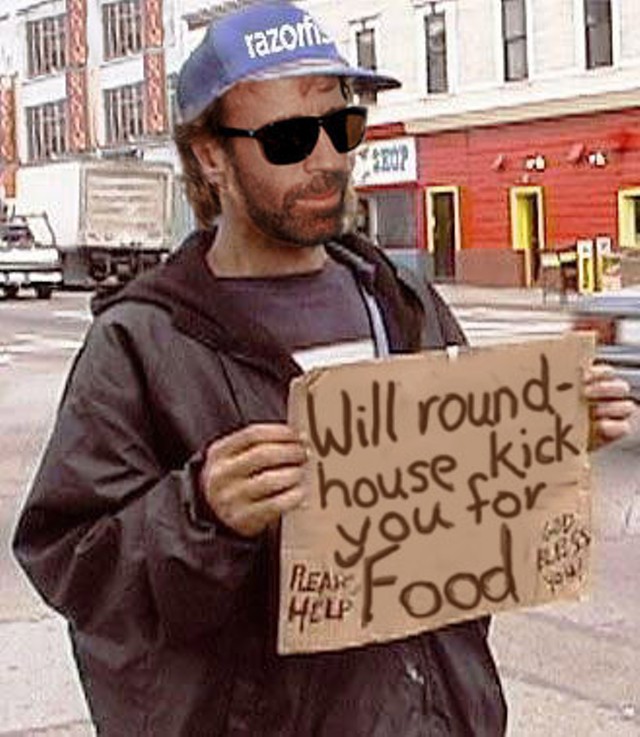 razorfis
SHOP
Will round-
house kick
you for
Food
PLEAS
HELP
GOD
BLESS
YOU!